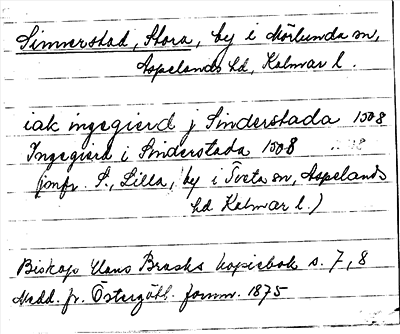 Simmerstad, Stora, by i Mörlunda sn,
Aspelands hd, Kalmar l.
iak ingegierd j Sinderstada 1508
Ingegierd i Sinderstada 1508
(jmfr. S., Lilla, by i Tveta sn, Aspelands
hd Kalmar l.)
Biskop Hans Brasks kopiebok s. 7, 8
Medd. fr. Östergötl. fornm. 1875